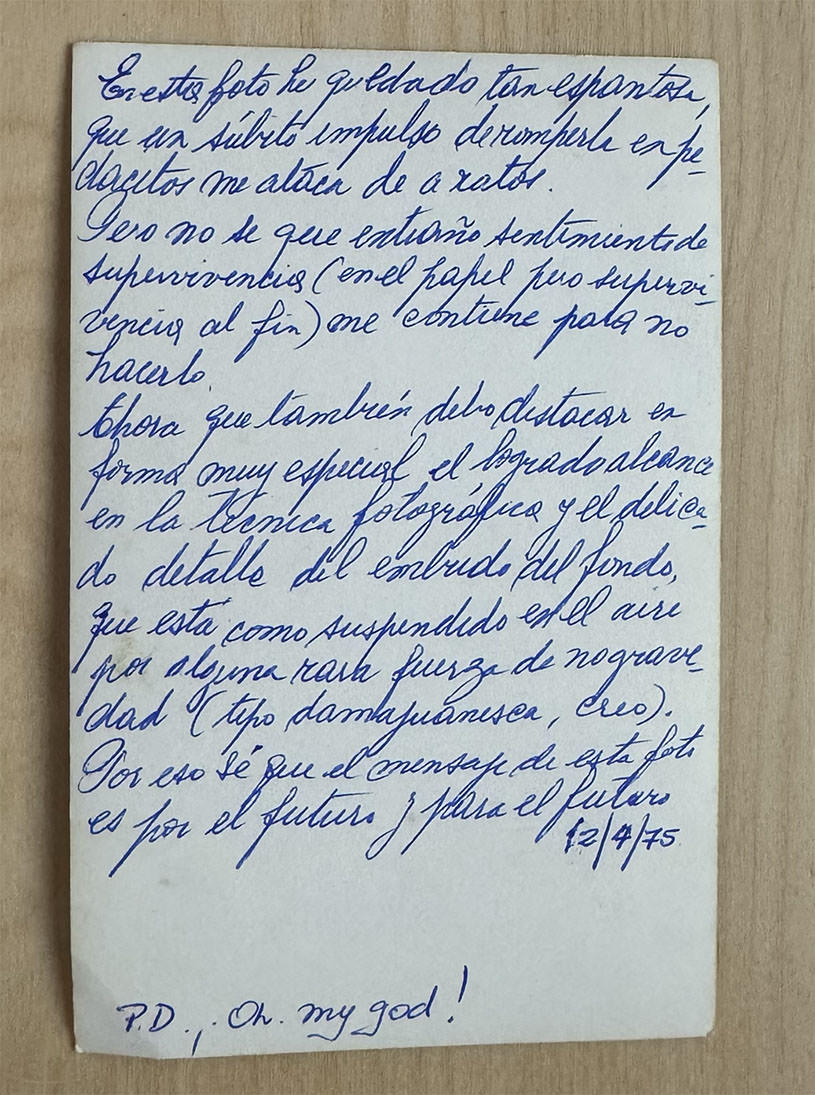 En esta foto he quedado tan espantosa,
que un súbito impulso de romperla en pe-
dacitos me ataca de a ratos.
Pero no se que extraño sentimiento de
supervivencia (en el papel pero supervi-
vencia al fin) me contiene para no
hacerlo.
Ahora que también debo destacar en
forma muy especial el logrado alcance
en la técnica fotográfica y el delica-
do detalle del embudo del fondo,
que está como suspendido en el aire
por alguna rara fuerza de nograve-
dad (tipo damajuanesca, creo).
Por eso sé que el mensaje de esta foto
es por el futuro y para el futuro
12/4/75
P.D. ¡Oh. my god!